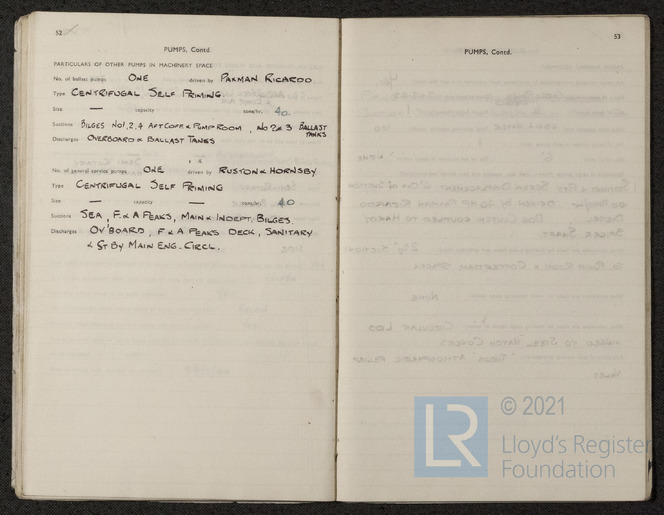 52
PUMPS, Contd.
PARTICULARS OF OTHER PUMPS IN MACHINERY SPACE
No. of ballast pumps ONE driven by PAXMAN RICARDO
Type CENTRIFUGAL SELF PRIMING
Size — capacity tons/hr. 40
Suctions BILGES No1,2,4 AFT COFF & PUMP ROOM, No 2 & 3 BALLAST TANKS
Discharges OVERBOARD & BALLAST TANKS
No. of general service pumps ONE driven by RUSTON & HORNSBY
Type CENTRIFUGAL SELF PRIMING
Size — capacity — tons/hr. 40
Suctions SEA, F. & A PEAKS, MAIN & INDEPT. BILGES.
Discharges OV'BOARD, F & A PEAKS DECK, SANITARY
& ST BY MAIN ENG. CIRCL.
53
PUMPS, Contd.
LR
© 2021
Lloyd's Register
Foundation